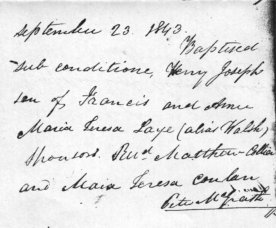 September 23. 1843.
Baptised
sub conditione, Henry Joseph
son of Francis and Anne
Maria Teresa Laye (alias Walsh)
Sponsors. Revd Matthew Collier
and Maia Teresa conlan
Peter McGrath